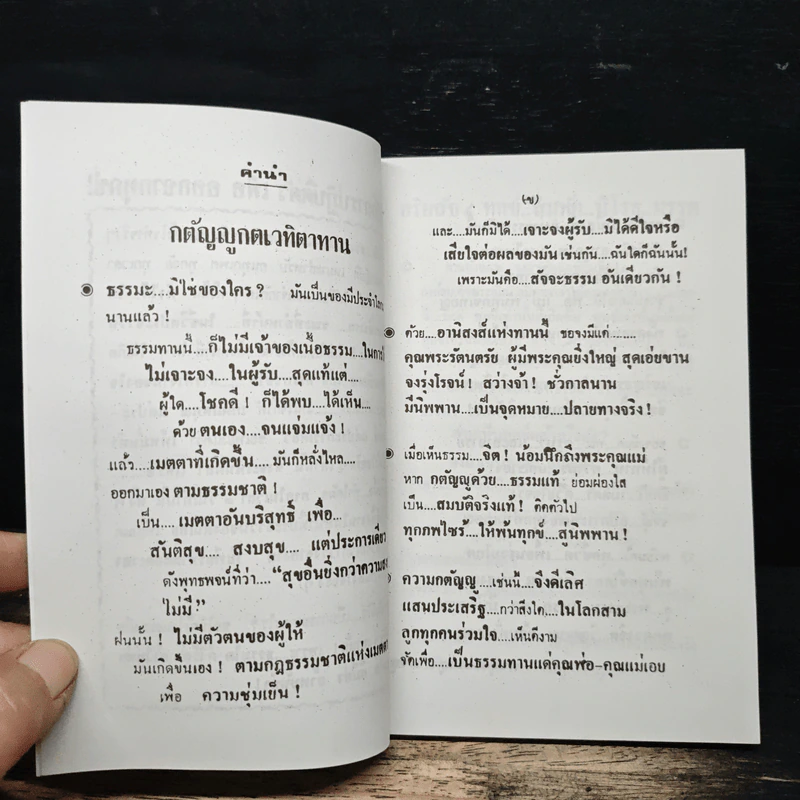 คำนำ
กตัญญูกตเวทิตาทาน
ธรรมะ....มิใช่ของใคร ? มันเป็นของมีประจำโลก
นานแล้ว !
ธรรมทานนี้....ก็ไม่มีเจ้าของเนื้อธรรม....ในการ
ไม่เจาะจง....ในผู้รับ....สุดแท้แต่....
ผู้ใด....โชคดี ! ก็ได้พบ....ได้เห็น....
ด้วย ตนเอง....จนแจ่มแจ้ง !
แล้ว....เมตตาที่เกิดขึ้น....มันก็หลั่งไหล....
ออกมาเอง ตามธรรมชาติ !
เป็น....เมตตาอันบริสุทธิ์ เพื่อ....
สันติสุข.... สงบสุข.... แต่ประการเดียว
ดังพุทธพจน์ที่ว่า...."สุขอื่นยิ่งกว่าความ
ไม่มี"
ฝนนั้น ! ไม่มีตัวตนของผู้ให้
มันเกิดขึ้นเอง ! ตามกฎธรรมชาติแห่งเมตตา
เพื่อ ความชุ่มเย็น !
(ข)
และ....มันก็มิได้....เจาะจงผู้รับ....มิได้ดีใจหรือ
เสียใจต่อผลของมัน เช่นกัน....ฉันใดก็ฉันนั้น!
เพราะมันคือ....สัจจะธรรม อันเดียวกัน !
ด้วย....อานิสงส์แห่งทานนี้ ขอจงมีแด่........
คุณพระรัตนตรัย ผู้มีพระคุณยิ่งใหญ่ สุดเอ่ยขาน
จงรุ่งโรจน์ ! สว่างจ้า ! ชั่วกาลนาน
มีนิพพาน....เป็นจุดหมาย....ปลายทางจริง !
เมื่อเห็นธรรม....จิต ! น้อมนึกถึงพระคุณแม่
หาก กตัญญูด้วย....ธรรมแท้ ย่อมผ่องใส
เป็น....สมบัติจริงแท้ ! ติดตัวไป
ทุกภพไซร้....ให้พ้นทุกข์....สู่นิพพาน !
ความกตัญญู....เช่นนี้....จึงดีเลิศ
แสนประเสริฐ....กว่าสิ่งใด....ในโลกสาม
ลูกทุกคนร่วมใจ....เห็นดีงาม
จัดเพื่อ....เป็นธรรมทานแด่คุณพ่อ-คุณแม่เอย